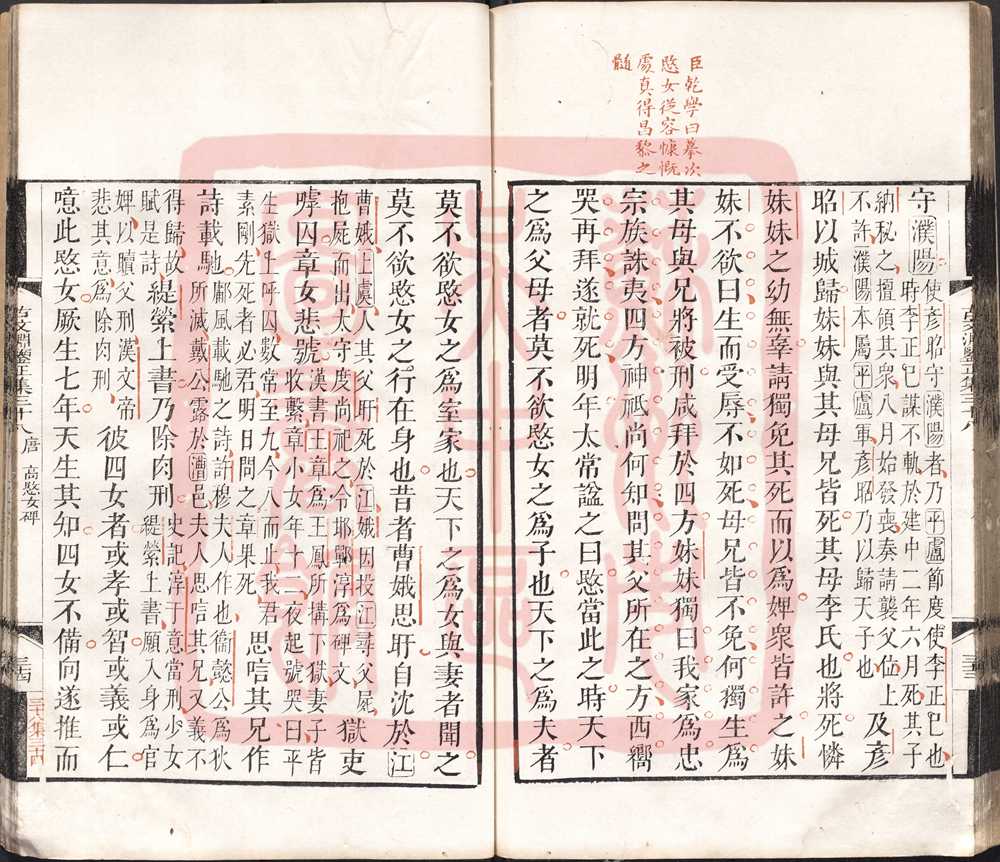 臣乾學曰摹次
愍女從容慷慨
處真得昌黎之
髓
守濮陽使彥昭守濮陽者乃平盧節度使李正巳也
時李正巳謀不軌於建中二年六月死其子
納秘之擅領其衆八月始發喪奏請襲父位上
不許濮陽本屬平盧軍彥昭乃以歸天子也
及彥
昭以城歸妹妹與其母兄皆死其母李氏也將死憐
妹妹之幼無辜請獨免其死而以爲婢衆皆許之妹
妹不欲曰生而受辱不如死母兄皆不免何獨生爲
其母與兄將被刑咸拜於四方妹妹獨曰我家爲忠
宗族誅夷四方神祇尚何知問其父所在之方西嚮
哭再拜遂就死明年太常諡之曰愍當此之時天下
之爲父母者莫不欲愍女之爲子也天下之爲夫者
莫不欲愍女之爲室家也天下之爲女與妻者聞之
莫不欲愍女之行在身也昔者曹娥思盱自沈於江
曹娥上虞人其父盱死於江娥因投江尋父屍
抱屍而出太守度尚祀之令邯鄲淳爲碑文
獄吏
嘑囚章女悲號
漢書王章爲王鳳所搆下獄妻子皆
收繫章小女年十二夜起號哭曰平
生獄上呼囚數常至九今八而止我君
素剛先死者必君明日問之章果死
思唁其兄作
詩載馳
鄘風載馳之詩許穆夫人作也衞懿公爲狄
所滅戴公露於漕邑夫人思唁其兄又義不
得歸故
賦是詩
緹縈上書乃除肉刑
史記淳于意當刑少女
緹縈上書願入身爲官
婢以贖父刑漢文帝
悲其意爲除肉刑
彼四女者或孝或智或義或仁
噫此愍女厥生七年天生其知四女不備向遂推而
古文淵鑒正集三十八
唐 高愍女碑